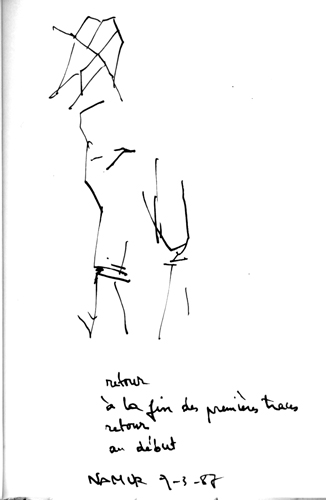 retour
à la fin des premières traces
retour
au début
NAMUR 9-3-87